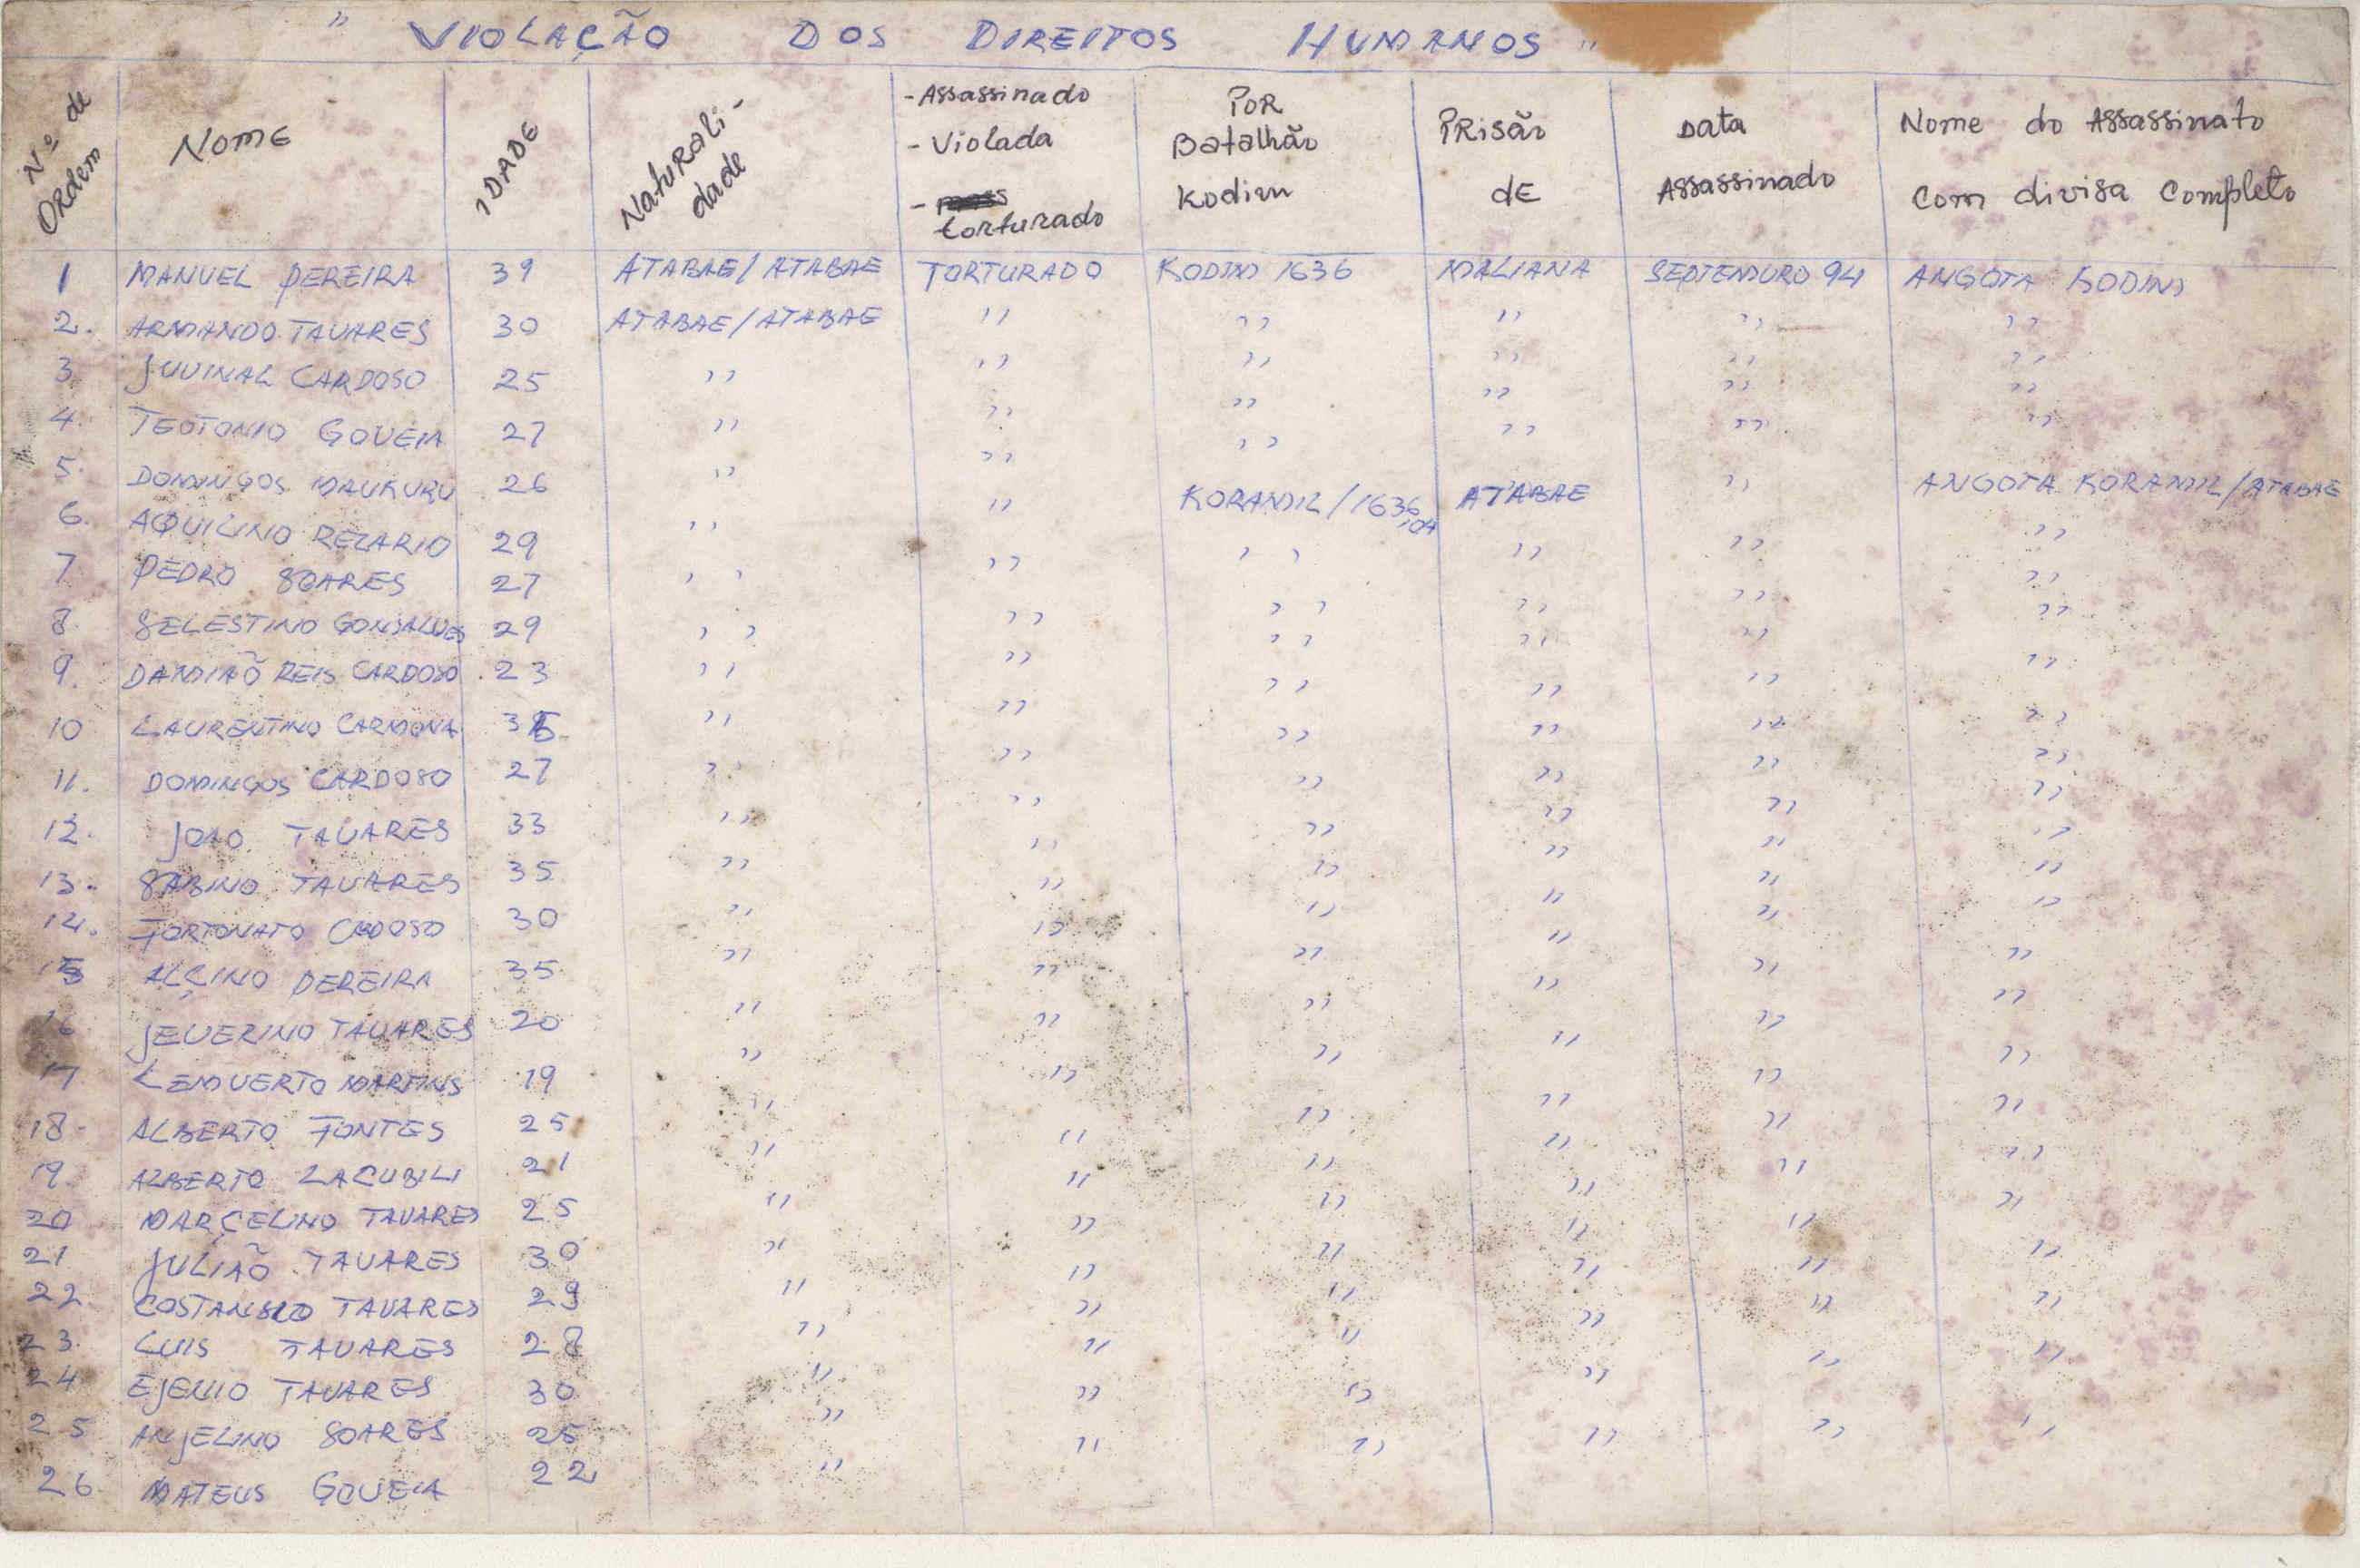 " VIOLAÇÃO DOS DIREITOS HUMANOS "
Nº de Ordem NOME IDADE Naturali-dade - Assassinado - Violada - torturado POR Batalhão Kodim PRisão dE Data Assassinado Nome do Assassinato Com divisa Completo
1 MANUEL PEREIRA 39 ATABAE/ATABAE TORTURADO KODIM 1636 MALIANA SEPTEMURO 94 ANGOTA KODIM
2. ARMANDO TAVARES 30 ATABAE/ATABAE " " " " "
3. JUVINAL CARDOSO 25 " " " " " "
4. TEOTONIO GOUEIA 27 " " " " " "
5. DOMINGOS MAUKURU 26 " " " " " "
6. AQUILINO REZARIO 29 " " KORAMIL/1636,04 ATABAE " ANGOTA KORAMIL/ATABAE
7 PEDRO SOARES 27 " " " " " "
8. SELESTINO GONSALUES 29 " " " " " "
9. DAMIAÕ REIS CARDOSO 23 " " " " " "
10 LAURENTINO CARMONA 35 " " " " " "
11. DOMINGOS CARDOSO 27 " " " " " "
12. JOAO TAVARES 33 " " " " " "
13. SABINO TAVARES 35 " " " " " "
14. FORTONATO CADOSO 30 " " " " " "
15 ALÇINO PEREIRA 35 " " " " " "
16. JEVERINO TAVARES 20 " " " " " "
17 LEMUERTO MARTINS 19 " " " " " "
18. ALBERTO FONTES 25 " " " " " "
19. ALBERTO LACUBILI 21 " " " " " "
20 MARÇELINO TAVARES 25 " " " " " "
21 JULIAÕ TAVARES 30 " " " " " "
22. COSTANSIO TAVARES 29 " " " " " "
23. LUIS TAVARES 28 " " " " " "
24 EJENIO TAVARES 30 " " " " " "
25 ANJELINO SOARES 25 " " " " " "
26. MATEUS GOUEIA 22 " " " " " "